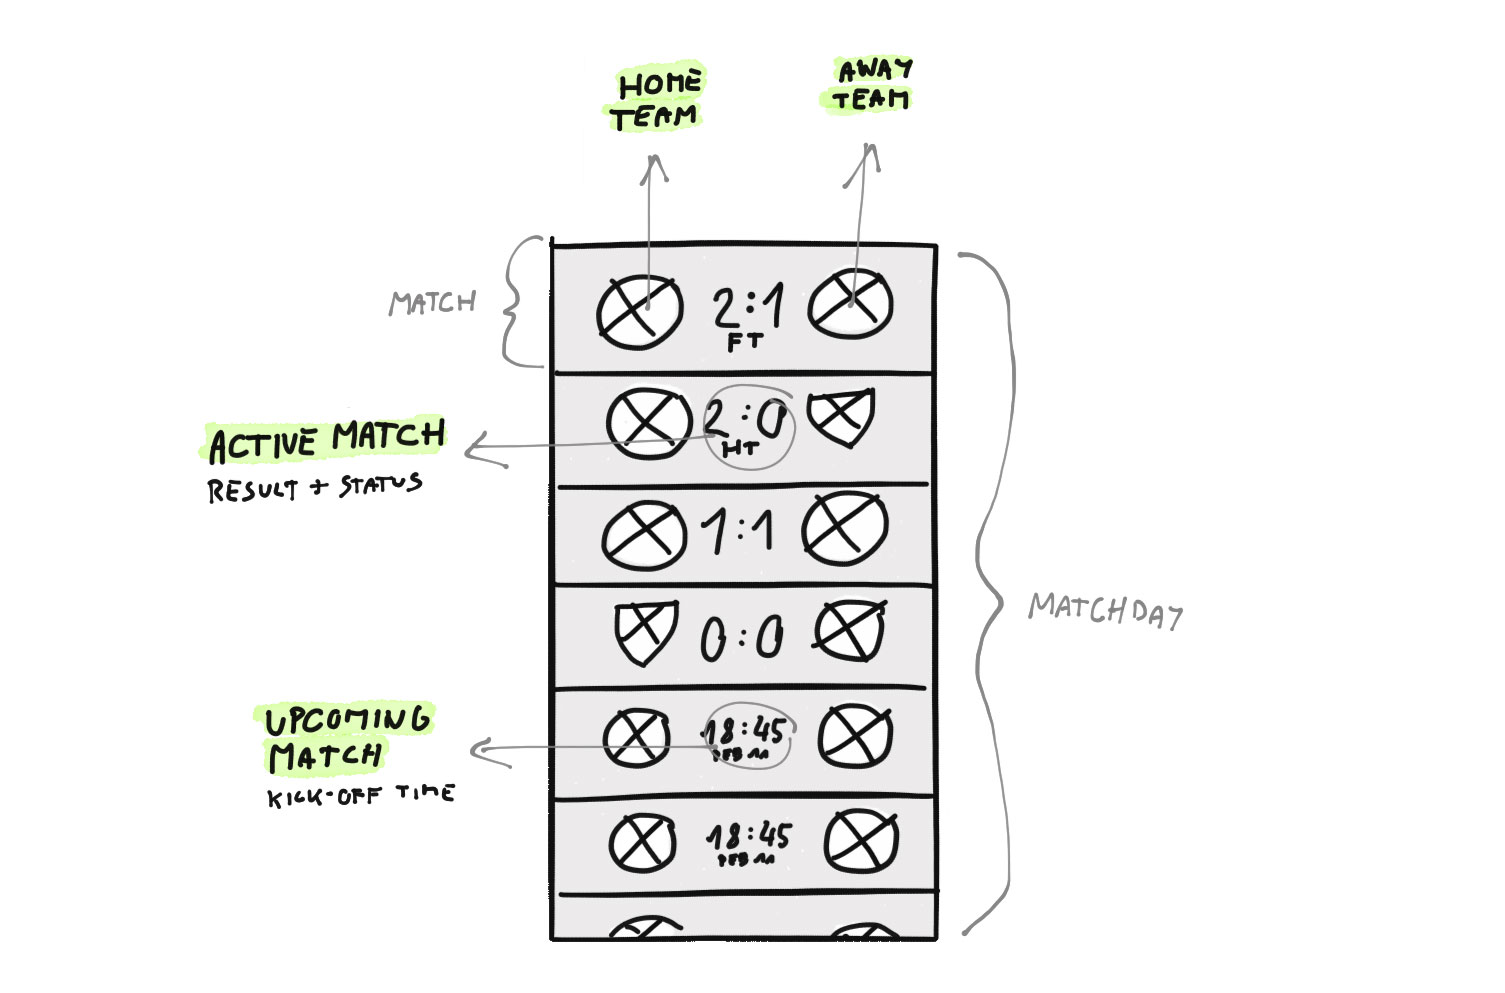 HOME
TEAM
AWAY
TEAM
MATCH
2:1
FT
ACTIVE MATCH
RESULT + STATUS
2:0
HT
1:1
0:0
MATCHDAY
UPCOMING
MATCH
KICK-OFF TIME
18:45
FEB 11
18:45
FEB 11